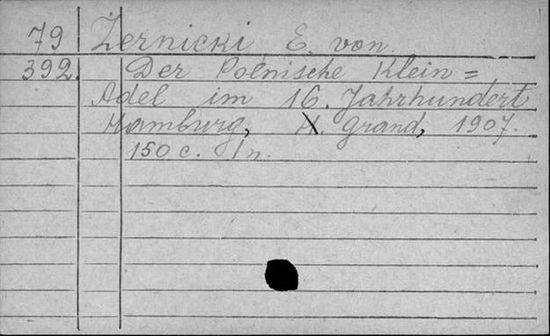 79 Zernicki E. von.
392. Der Polnische Klein=
Adel im 16. Jahrhundert
Hamburg, H. Grand, 1907.
150 c. 1 n.